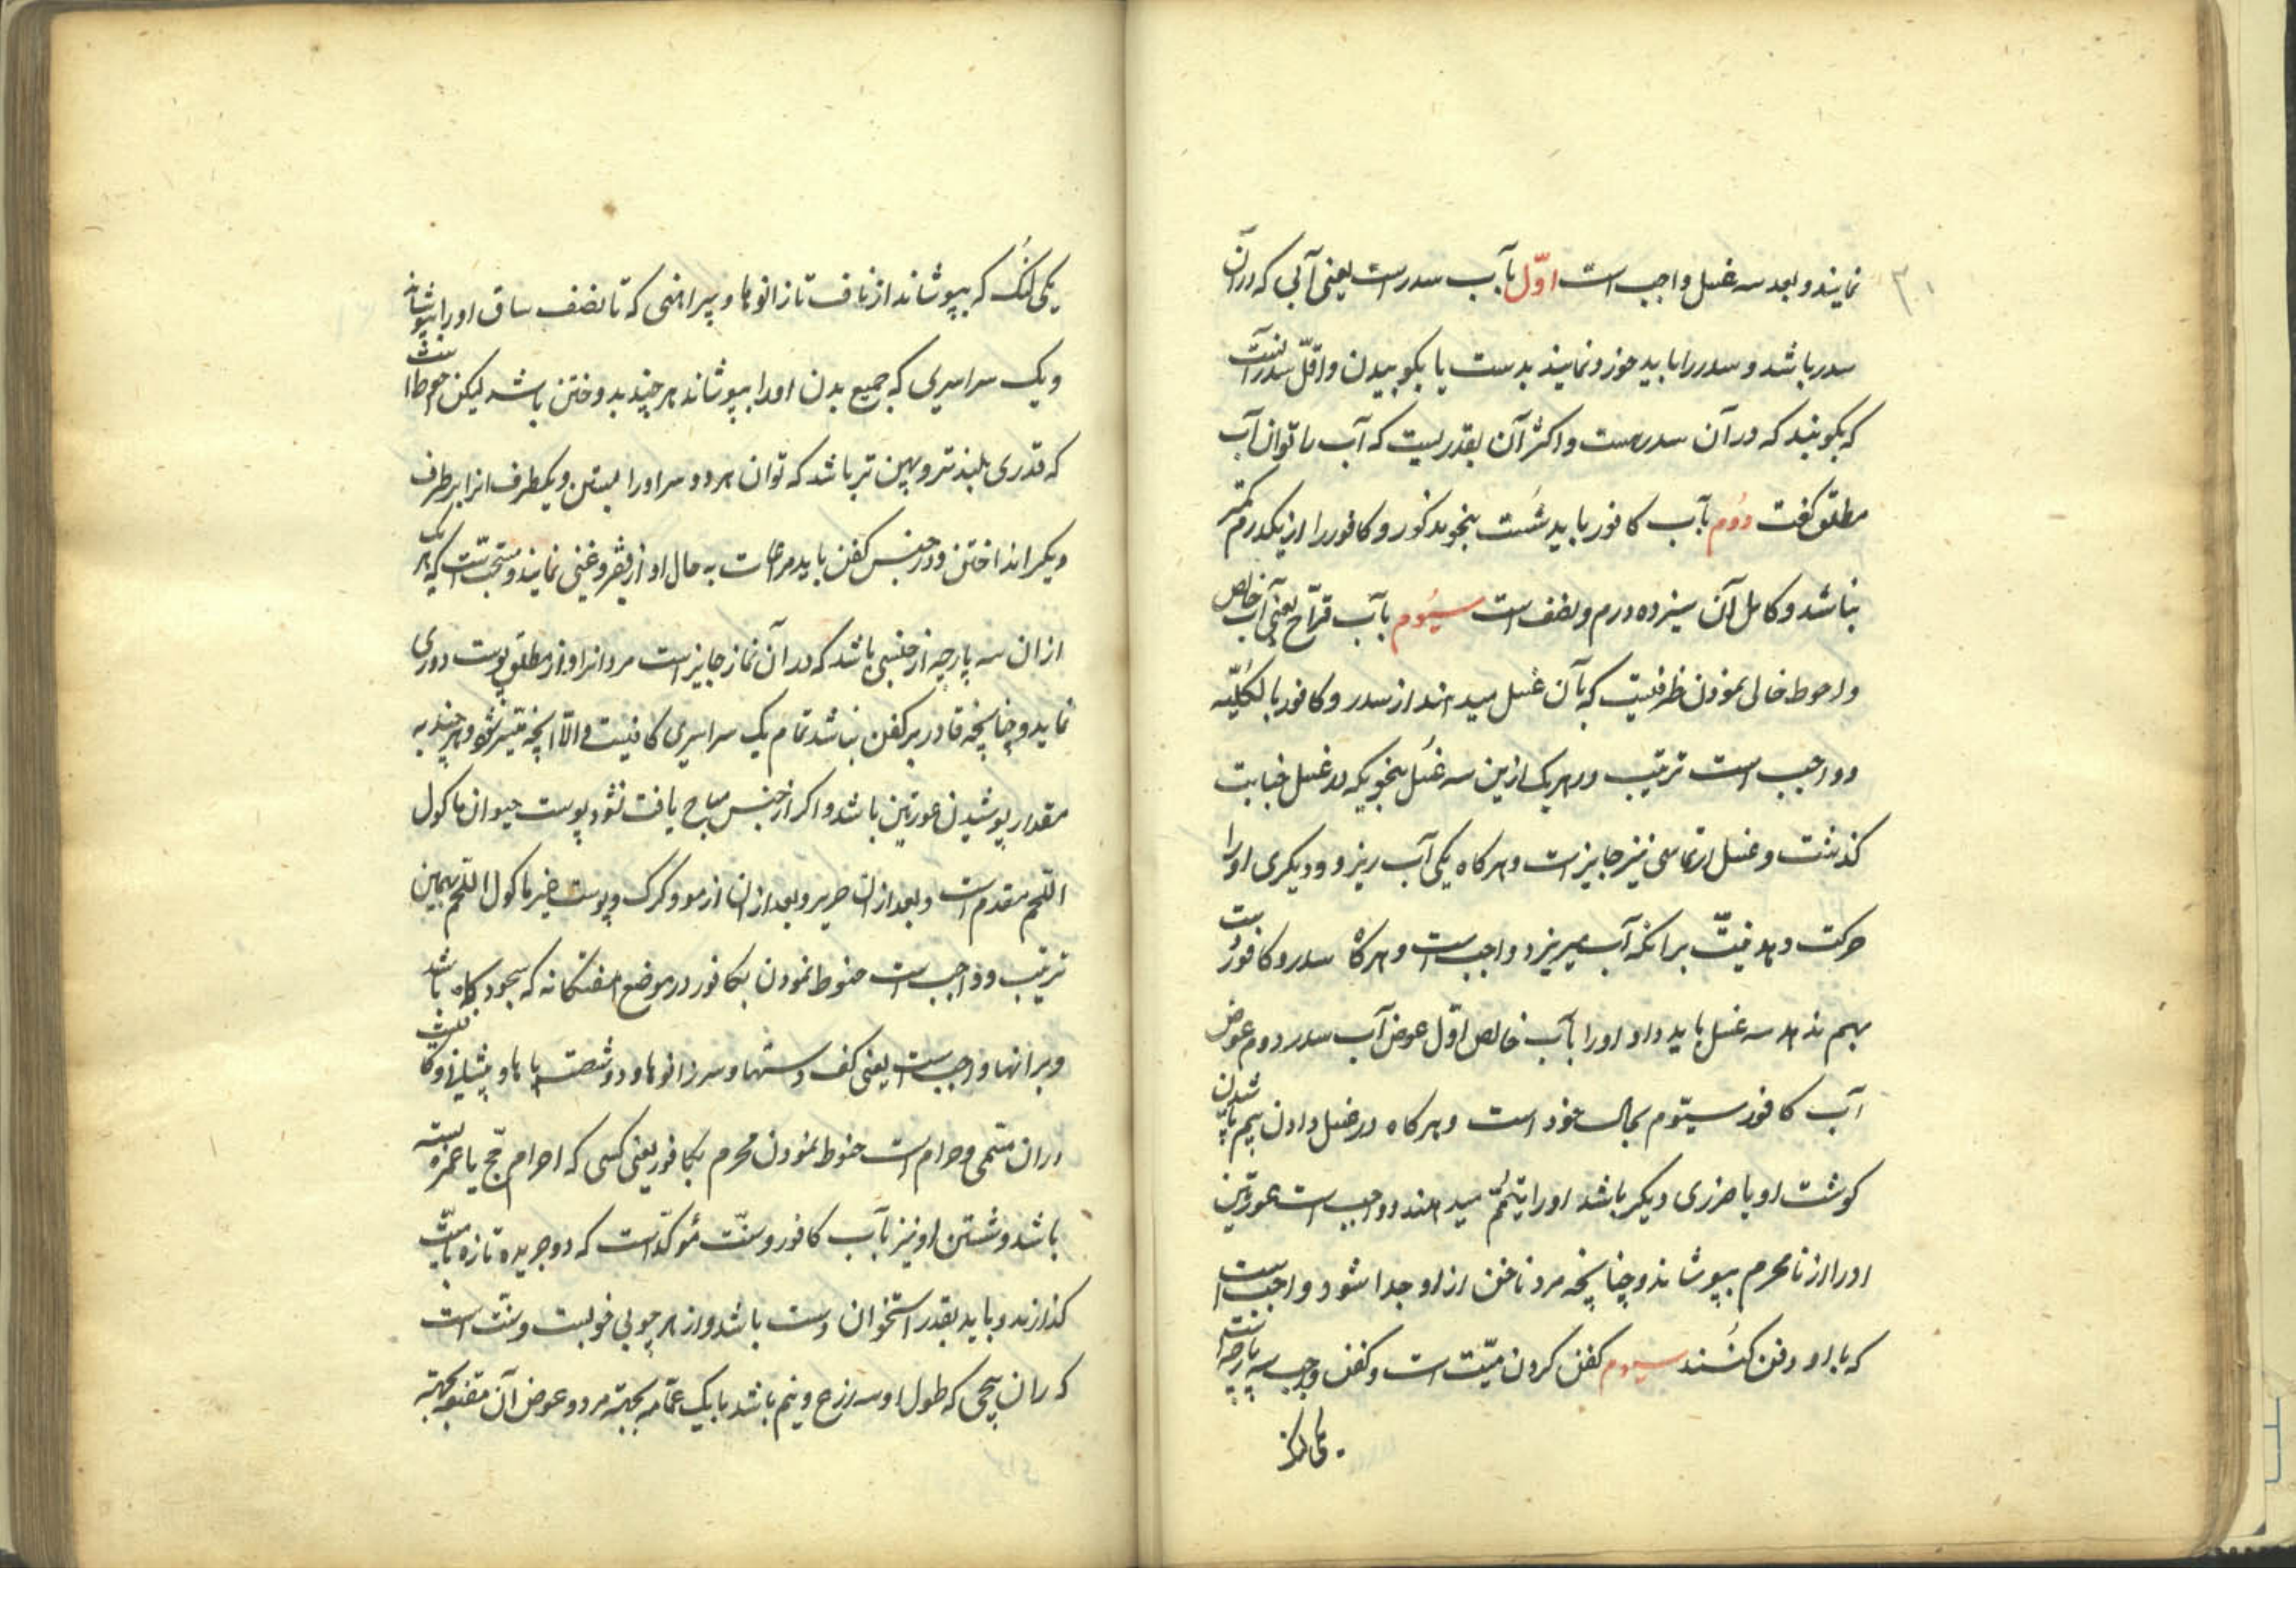 ۳۰
نمایند و بعد سه غسل واجب است اوّل بآب سدر است یعنی آبی که در آن
سدر باشد و سدر را باید خورد نمایند بدست یا بکوبیدن و اقلّ سدر آنست
که بگویند که در آن سدر هست و اکثر آن بقدریست که آب را توان آب
مطلق گفت دوُم بآب کافور باید شُست بنحو مذکور و کافور را از یکدرم کمتر
نباشد و کامل آن سیزده درم و نصف است سیُوم بآب قراح یعنی آب خالص
و احوط خالی نمودن ظرفیست که بآن غسل میدهند از سدر و کافور بالکُلیّه
و واجب است ترتیب در هر یک ازین سه غسُل بنحویکه در غسل جنابت
گذشت و غسل ارتماسی نیز جایز است و هرگاه یکی آب ریزد و دیگری او را
حرکت دهد نیّت بر آنکه آب میریزد واجب است و هرگاه سدر و کافور بدست
بهم ندهد سه غسل باید داد او را بآب خالص اوّل عوض آب سدر دوم عوض
آب کافور سیّوم بحال خود است و هرگاه در غسل دادن بیم پاشیدن
گوشت او یا ضرری دیگر باشد او را تیمّم میدهند و واجب است عورتین
او را از نامحرم بپوشانند و چنانچه مو و ناخن از او جدا شود واجب است
که با او دفن کُنند سیوم کفن کردن میّت است و کفن واجب سه پارچه است
یکی لنُگ که بپوشاند از ناف تا زانوها و پیراهنی که تا نصف ساق او را بپوشاند
و یک سراسری که جمیع بدن او را بپوشاند هر چند بدوختن باشد لیکن احوط آنست
که قدری بلندتر و پهن تر باشد که توان هر دو سر او را بستن و یکطرف انرا بر طرف
دیگر انداختن و در جنس کفن باید مراعات به حال او از فقر و غنی نمایند و مستحبّ است که هر یک
از ان سه پارچه از جنسی باشد که در آن نماز جایز است مردانرا و از مطلق پوست دوری
نماید و چنانچه قادر بر کفن نباشد تمام یک سراسری کافیست و الّا آنچه میّسر شود هر چند به
مقدار پوشیدن عورتین باشد و اگر از جنس مباح یافت نشود پوست حیوان ماکول
اللحم مقدم است و بعد از ان حریر و بعد از ان از مو و کرک و پوست غیر ماکول اللحم بهمین
ترتیب و واجب است حنوط نمودن بکافور در موضع هفتگانه که سجود گاه باشد
و بر انها واجب است یعنی کف دستها و سر زانوها و دو شصت پاها و پیشانی و کافیست
در ان مسّمی و حرام است حنوط نمودن محرم بکافور یعنی کسی که احرام حجّ یا عمره بسته
باشد و شستن او نیز بآب کافور و سنّت مُؤکدّ است که دو جریده تازه با میّت
گذارند و باید بقدر استخوان دست باشد و از هر چوبی خوبست و سنّت است
که ران پیچی که طول او سه ذرع و نیم باشد با یک عمّامه بجهته مرد و عوض آن مقنعه بجهته